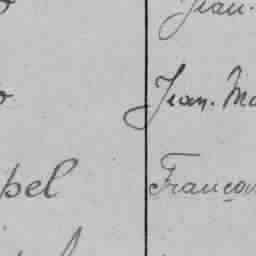 Jean.
Jean. Ma
pel Françoi